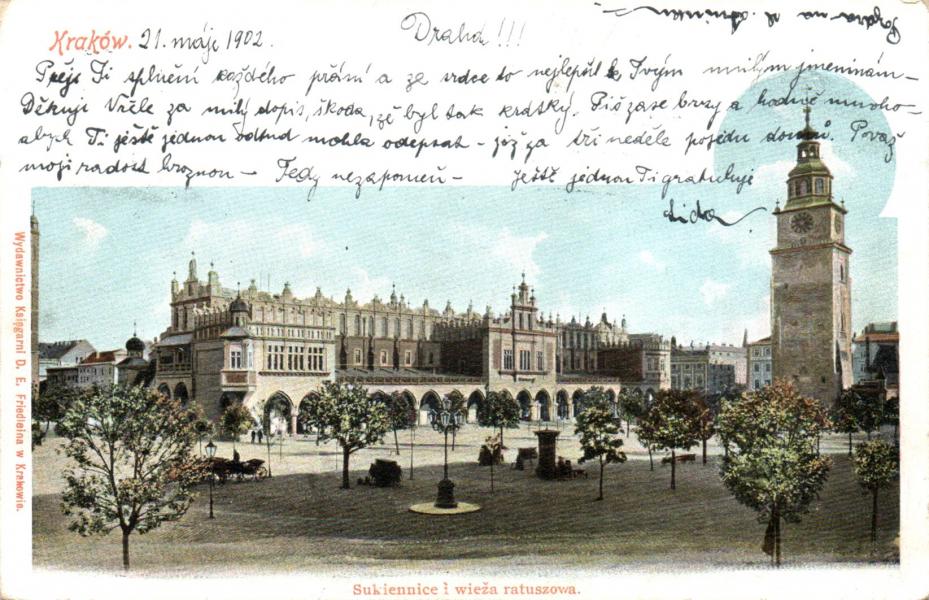 Kraków. 21. máje 1902.
Drahá!!!
Přeji Ti splnění každého přání a ze srdce to nejlepší k Tvým milým jmeninám –
Děkuji Vřele za milý dopis, škoda, že byl tak krátký. Piš zase brzy a hodně mnoho –
abych Ti ještě jednou odtud mohla odepsat – již za tři neděle pojedu domů. Považ
moji radost hroznou – Tedy nezapomeň – Ještě jednou Ti gratuluje
Lida
Wydawnictwo Księgarni D. E. Friedleina w Krakowie.
Sukiennice i wieża ratuszowa.